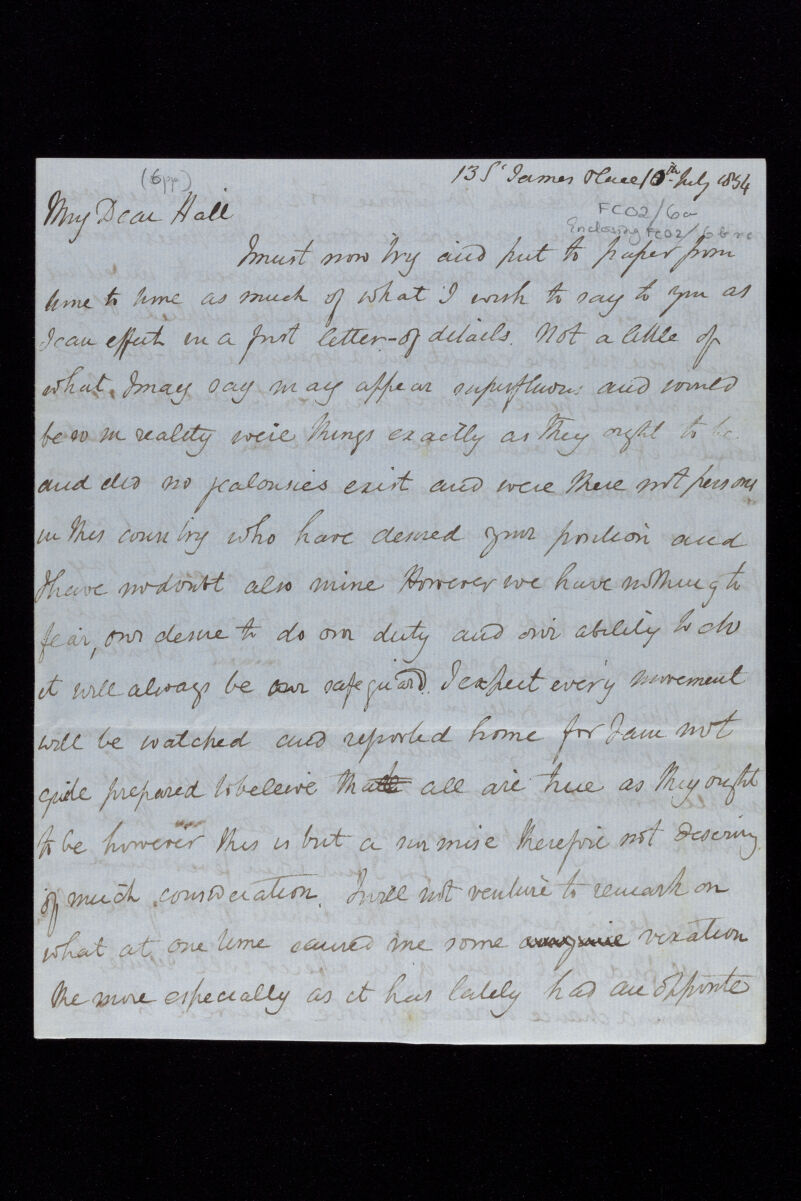 (6pp)
13 St James Place 10th July 1854
FCO2/6a
Enclosing FCO2/6b
My Dear Hall
I must now try and put to paper from
time to time as much of what I wish to say to you as
I can effect in a first letter - of details. Not a little of
what I may say may appear superfluous and would
be so in reality were things exactly as they ought to be
and did no jealousies exist and were there not persons
in this country who have desired your position and
I have no doubt also mine However we have nothing to
fear, our desire to do our duty and our ability to do
it will always be our safeguard. I expect every movement
will be watched and reported home for I am not
quite prepared to beleive that all are true as they ought
to be however this is but a surmise therefore not deserving
of much consideration. I will not venture to remark on
what at one time caused me some vexation
the more especially as it has lately had an opposite